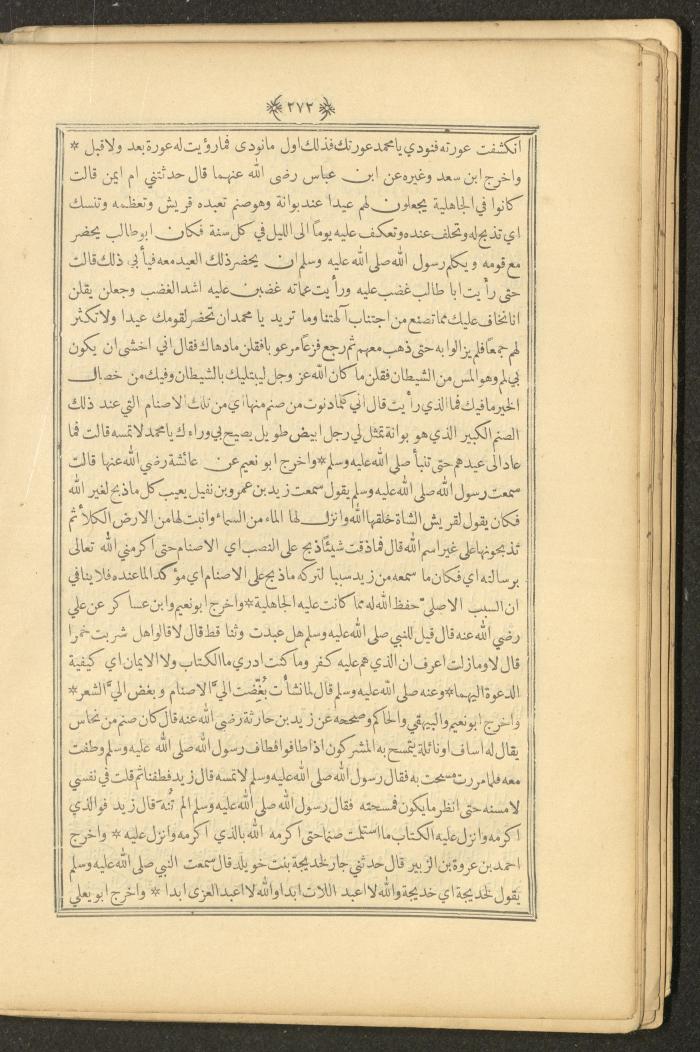 ٢٧٢
انكشفت عورته فنودي يا محمد عورتك فذلك اول مانودى فمارؤيت له عورة بعد ولا قبل *
واخرج ابن سعد وغيره عن ابن عباس رضى الله عنهما قال حدثتني ام ايمن قالت
كانوا في الجاهلية يجعلون لهم عيدا عند بوانة وهو صنم تعبده قريش وتعظمه وتنسك
اي تذبح له وتحلف عنده وتعكف عليه يوماً الى الليل في كل سنة فكان ابو طالب يحضر
مع قومه ويكلم رسول الله صلى الله عليه وسلم ان يحضر ذلك العيد معه فيأبى ذلك قالت
حتى رأيت ابا طالب غضب عليه ورأيت عماته غضبن عليه اشد الغضب وجعلن يقلن
انا نخاف عليك مما تصنع من اجتناب آلهتنا وما تريد يا محمد ان تحضر لقومك عيدا ولا تكثر
لهم جمعاً فلم يزالوا به حتى ذهب معهم ثم رجع فزعاً مرعوبا فقلن مادهاك فقال اني اخشى ان يكون
بي لم وهو المس من الشيطان فقلن ما كان الله عز وجل ليبتليك بالشيطان وفيك من خصال
الخير ما فيك فما الذي رأيت قال اني كلما دنوت من صنم منها اي من تلك الاصنام التي عند ذلك
الصنم الكبير الذي هو بوانة تمثل لي رجل ابيض طويل يصيح بي وراءك يا محمد لا تمسه قالت فما
عاد الى عيدهم حتى تنبأ صلى الله عليه وسلم * واخرج ابو نعيم عن عائشة رضي الله عنها قالت
سمعت رسول الله صلى الله عليه وسلم يقول سمعت زيد بن عمرو بن نفيل يعيب كل ما ذبح لغير الله
فكان يقول لقريش الشاة خلقها الله وانزل لها الماء من السماء وانبت لها من الارض الكلأ ثم
تذبحونها على غير اسم الله قال فما ذقت شيئاً ذبح على النصب اي الاصنام حتى اكرمني الله تعالى
برسالته اي فكان ما سمعه من زيد سببا لتركه ما ذبح على الاصنام اي مؤكدا لما عنده فلا ينافي
ان السبب الاصلي حفظ الله له مما كانت عليه الجاهلية * واخرج ابو نعيم وابن عساكر عن علي
رضي الله عنه قال قيل للنبي صلى الله عليه وسلم هل عبدت وثنا قط قال لا قالوا هل شربت خمرا
قال لا وما زلت اعرف ان الذي هم عليه كفر وما كنت ادري ما الكتاب ولا الايمان اي كيفية
الدعوة اليهما * وعنه صلى الله عليه وسلم قال لما نشأت بُغِّضت اليَّ الاصنام وبغض اليَّ الشعر *
واخرج ابو نعيم والبيهقي والحاكم وصححه عن زيد بن حارثة رضى الله عنه قال كان صنم من نحاس
يقال له اساف او نائلة يتمسح به المشركون اذا طافوا فطاف رسول الله صلى الله عليه وسلم وطفت
معه فلما مررت مسحت به فقال رسول الله صلى الله عليه وسلم لا تمسه قال زيد فطفنا ثم قلت في نفسي
لامسنه حتى انظر ما يكون فمسحته فقال رسول الله صلى الله عليه وسلم الم تُنه قال زيد فوالذي
اكرمه وانزل عليه الكتاب ما استلمت صنما حتى اكرمه الله بالذي اكرمه وانزل عليه * واخرج
احمد بن عروة بن الزبير قال حدثني جار لخديجة بنت خويلد قال سمعت النبي صلى الله عليه وسلم
يقول لخديجة اي خديجة والله لا اعبد اللات ابدا والله لا اعبد العزى ابدا * واخرج ابو يعلي